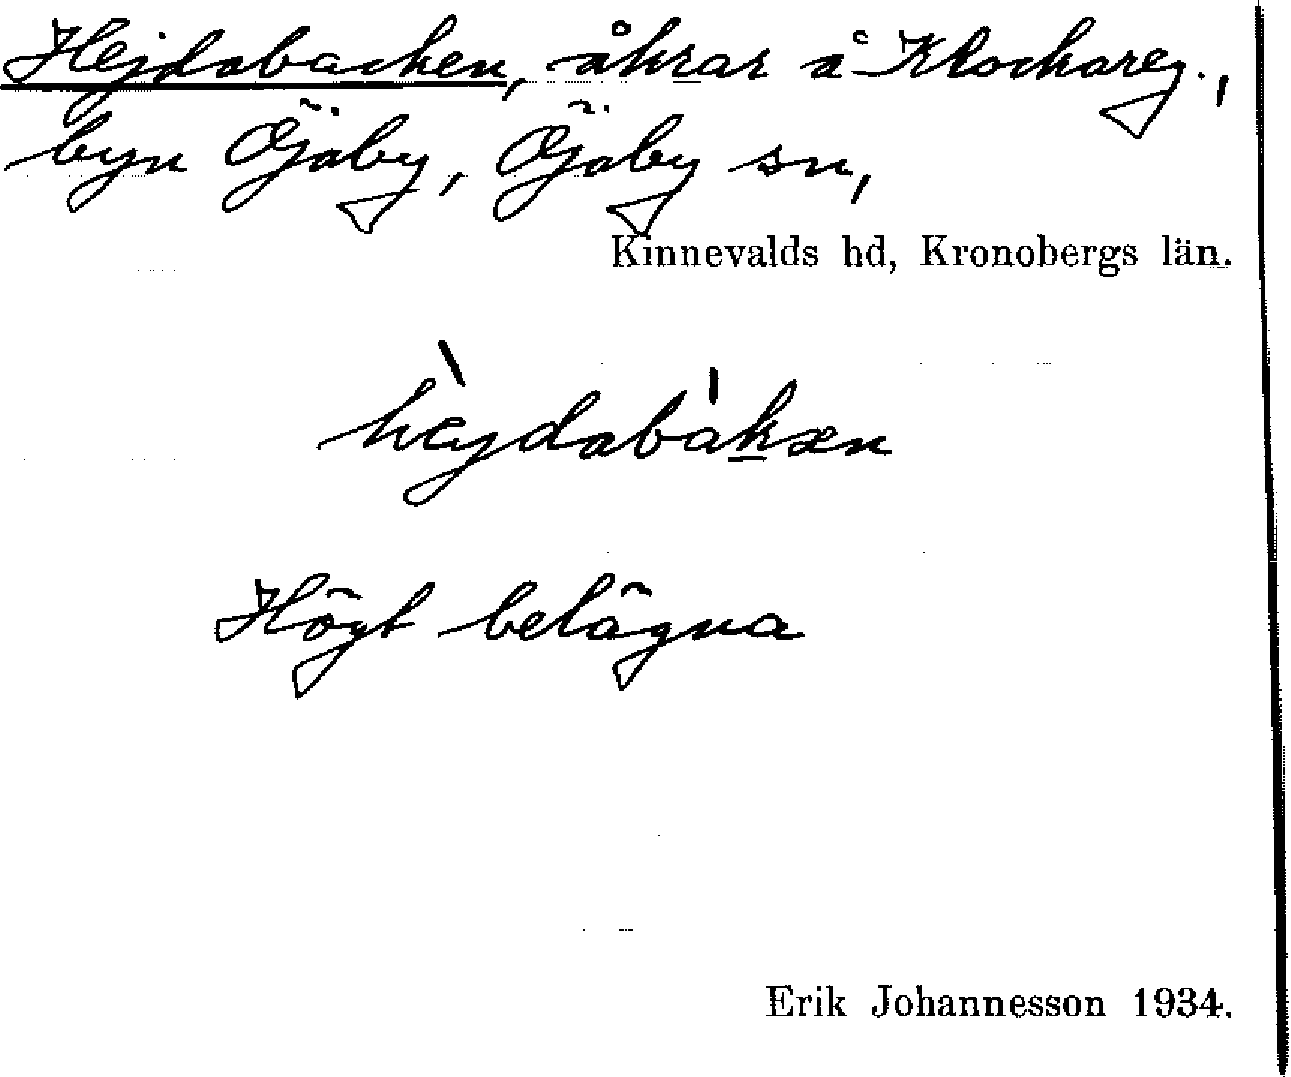 Hejdabacken, åkrar å Klockareg.,
byn Öjaby, Öjaby sn,
Kinnevalds hd, Kronobergs län.
hèjdabàkæn
Högt belägna
Erik Johannesson 1934.